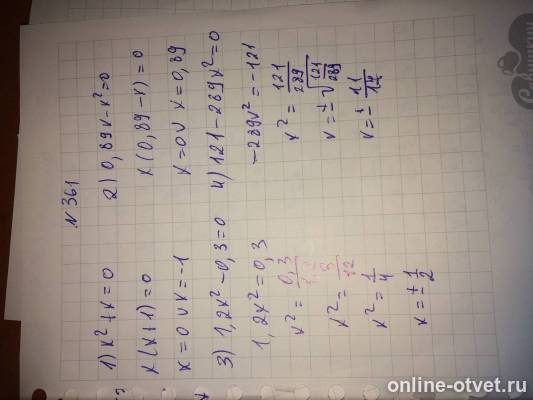 N 361
1) x² + x = 0
x(x+1) = 0
x = 0 ∨ x = -1
2) 0,89x - x² = 0
x(0,89 - x) = 0
x = 0 ∨ x = 0,89
3) 1,2x² - 0,3 = 0
1,2x² = 0,3
x² = 0,3/1,2
x² = 3/12
x² = 1/4
x = ± 1/2
4) 121 - 289x² = 0
-289x² = -121
x² = 121/289
x = ± √(121/289)
x = ± 11/17
online-otvet.ru